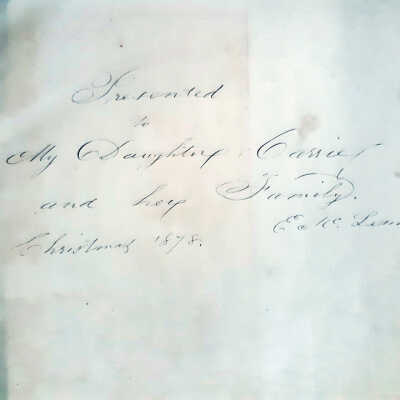 Presented
to
My Daughter Carrie
and her Family.
Christmas 1878.